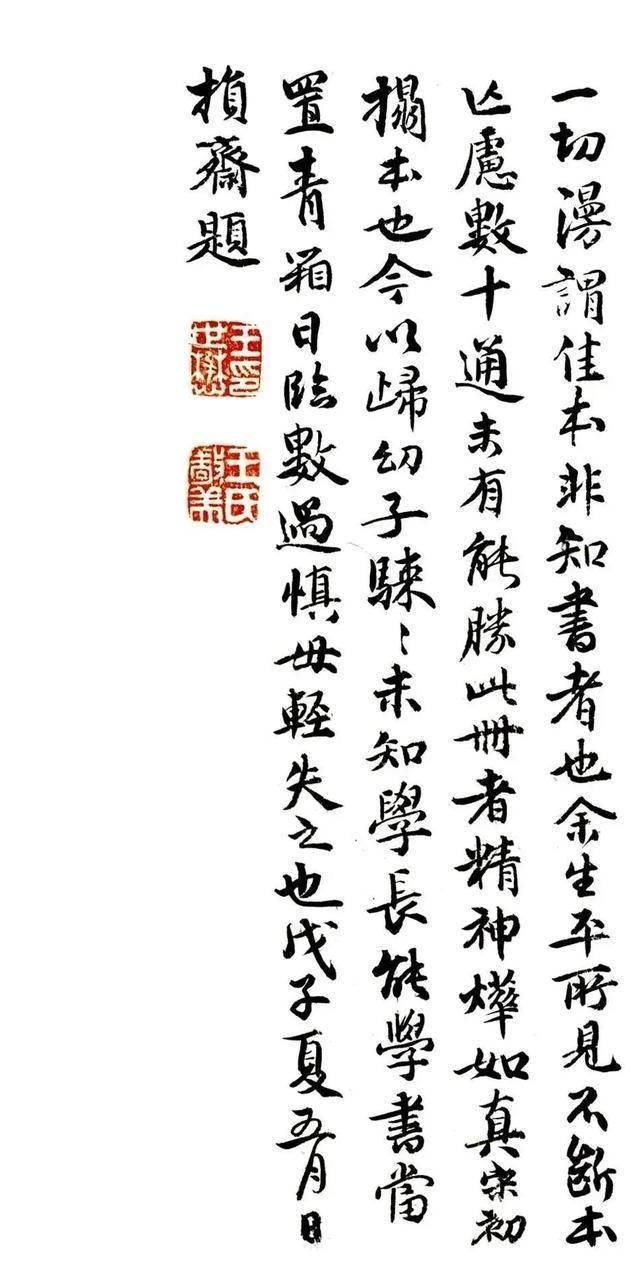 一切漫謂佳本非知書者也余生平所見不斷本
亡慮數十通未有能勝此冊者精神燁如真宋初
搨本也今以歸幼子騋〻未知學長能學書當
置青箱日臨數過慎毋輕失之也戊子夏五月日
損齋題
王印世懋
王氏敬美